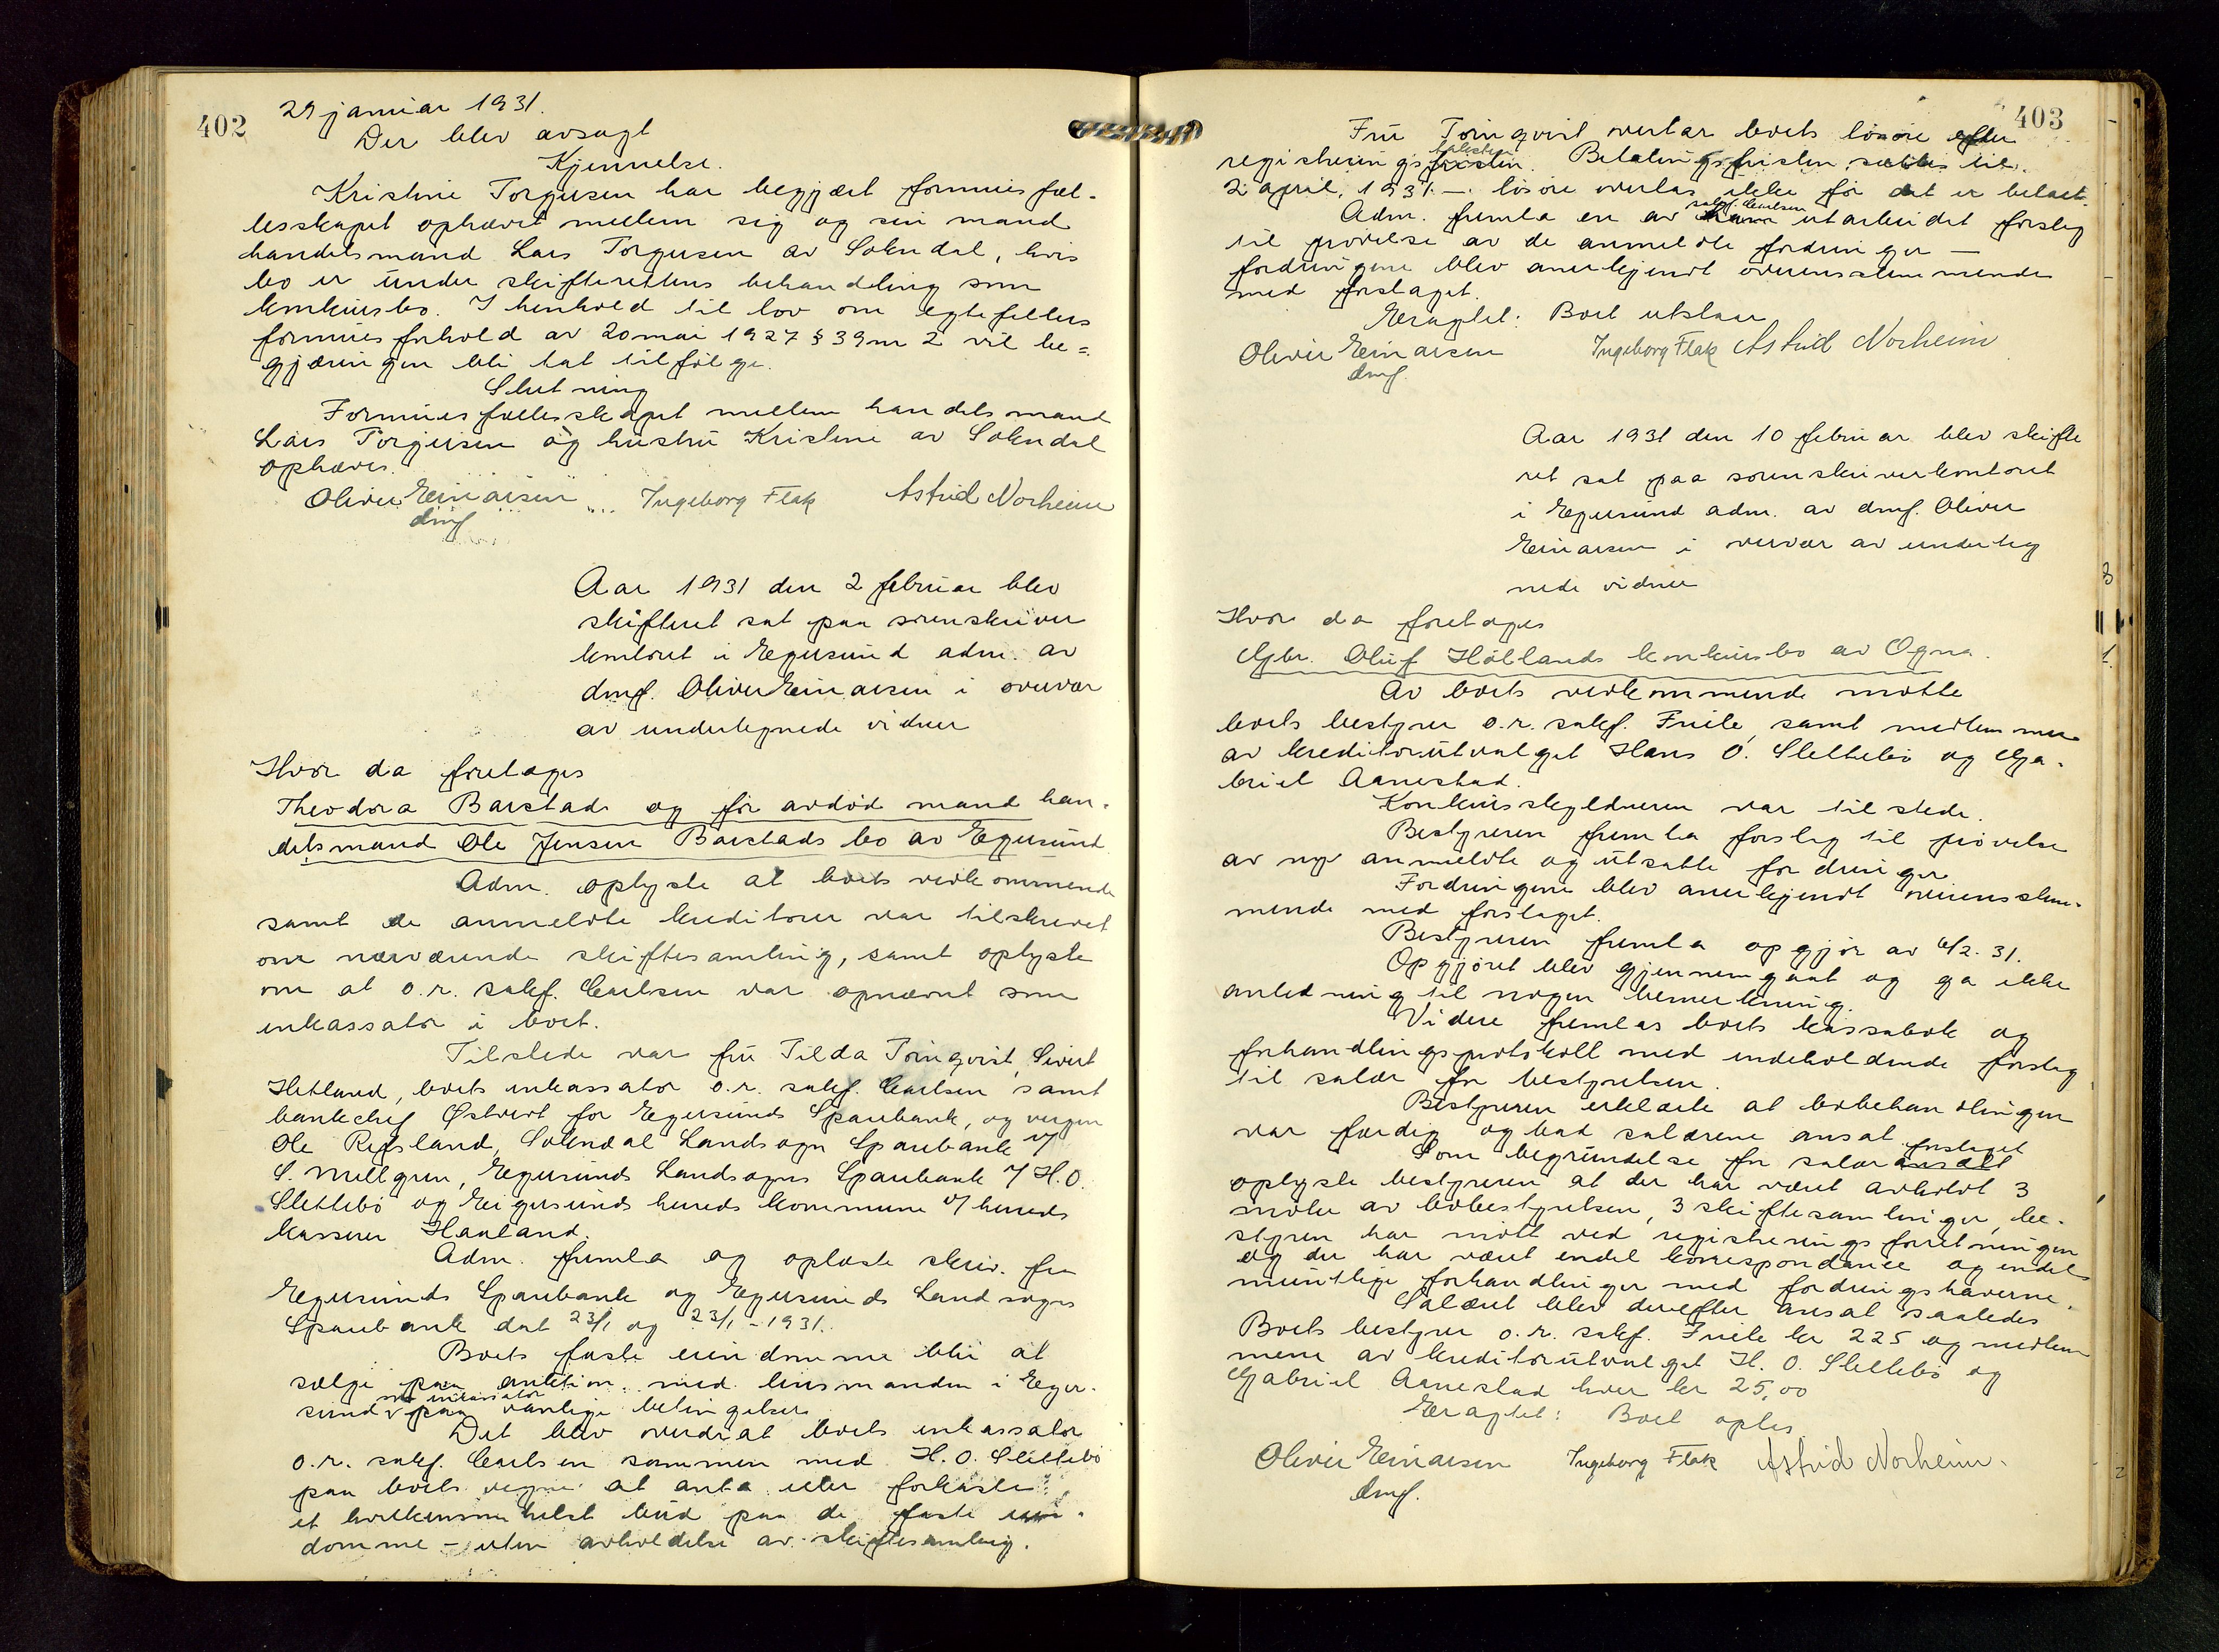 402
29 januar 1931.
Der blev avsagt
Kjennelse.
Kristine Torgersen har begjært formuesfæl-
lesskapet ophævet mellem sig og sin mand
handelsmand Lars Torgersen av Sokndal, hvis
bo er under skifterettens behandling som
konkursbo. I henhold til lov om egtefellers
formuesforhold av 20 mai 1927 § 39 nr 2 vil be-
gjæringen bli tat tilfølge.
Slutning
Formuesfællesskapet mellem handelsmand
Lars Torgersen og hustru Kristine av Sokndal
ophæves.
Oliver Einarsen Ingeborg Flak Astrid Norheim
dmf.
Aar 1931 den 2 februar blev
skifteret sat paa sorenskriver
kontoret i Egersund adm. av
dmf. Oliver Einarsen i overvær
av undertegnede vidner
Hvor da foretages
Theodora Barstads og før avdød mand han-
delsmand Ole Jensen Barstads bo av Egersund
Adm. oplyste at boets vedkommende
samt de anmeldte kreditorer var tilskrevet
om nærværende skiftesamling, samt oplyste
om at o.r. sakf. Carlsen var opnævnt som
inkassator i boet.
Tilstede var fru Tilda Törnqvist, Sivert
Hetland, boets inkassator o.r. sakf. Carlsen samt
bankchef Østvedt for Egersunds Sparebank, og vergen
Ole Refsland, Sokndal Landsogn Sparebank v/
S. Mellgren, Egersunds Landsogns Sparebank v/ H.O.
Slettebö og Eigersunds herreds kommune v/ herreds
kasserer Haaland.
Adm. fremla og oplæste skriv. fra
Egersunds Sparebank og Egersunds Landsogns
Sparebank dat 23/1 og 23/1 - 1931.
Boets faste eiendomme blir at
sælge paa auktion med lensmanden i Eger-
som inkassator
sund paa vanlige betingelser.
Det blev overdrat boets inkassator
o.r. sakf. Carlsen sammen med H.O. Slettebö
paa boets vegne at anta eller forkaste
et hvilketsomhelst bud paa de faste eien-
domme - uten avholdelse av skiftesamling.
403
Fru Törnqvist overtar boets lösöre efter
taksten
registeringsfristen. Betalingsfristen sættes til
2 april, 1931. - lösöre overlas ikke før det er betalt.
sakf. Carlsen
Adm. fremla en av ham utarbeidet forslag
til prövelse av de anmeldte fordringer -
fordringene blev anerkjendt overensstemmende
med forslaget.
Eragtet: Boet utstaar
Oliver Einarsen Ingeborg Flak Astrid Norheim
dmf.
Aar 1931 den 10 februar blev skifte
ret sat paa sorenskriverkontoret
i Egersund adm. av dmf. Oliver
Einarsen i overvær av underteg
nede vidner
Hvor da foretages
Gbr. Oluf Höllands konkursbo av Ogna.
Av boets vedkommende mötte
boets bestyrer o.r. sakf. Frile, samt medlemmer
av kreditorutvalget Hans O. Slettebö og Ga-
briel Aanestad.
Konkursskyldneren var tilstede.
Bestyreren fremla forslag til prövelse
av nye anmeldte og utsatte fordringer
Fordringene blev anerkjendt overensstem-
mende med forslaget.
Bestyreren fremla opgjör av 6/2. 31.
Opgjöret blev gjennemgaat og ga ikke
anledning til nogen bemerkning.
Videre fremlas boets kassabok og
forhandlingsprotokoll med indeholdende forslag
til salær for bestyrelsen.
Bestyreren erklærte at bobehandlingen
var færdig og bad salærene ansat.
forslaget
Som begrundelse for salær ansatt
oplyste bestyreren at der har været avholdt 3
möter av bobestyrelsen, 3 skiftesamlinger, be-
styren har mött ved registeringsforretningen
og der har været endel korrespondance og endel
muntlige forhandlinger med fordringshaverne.
Salæret blev derefter ansat saaledes
Boets bestyrer o.r. sakf. Frile kr 225 og medlem
mene av kreditorutvalget H. O. Slettebö og
Gabriel Aanestad hver kr 25,00
Eragtet: Boet oples
Oliver Einarsen Ingeborg Flak Astrid Norheim.
dmf.